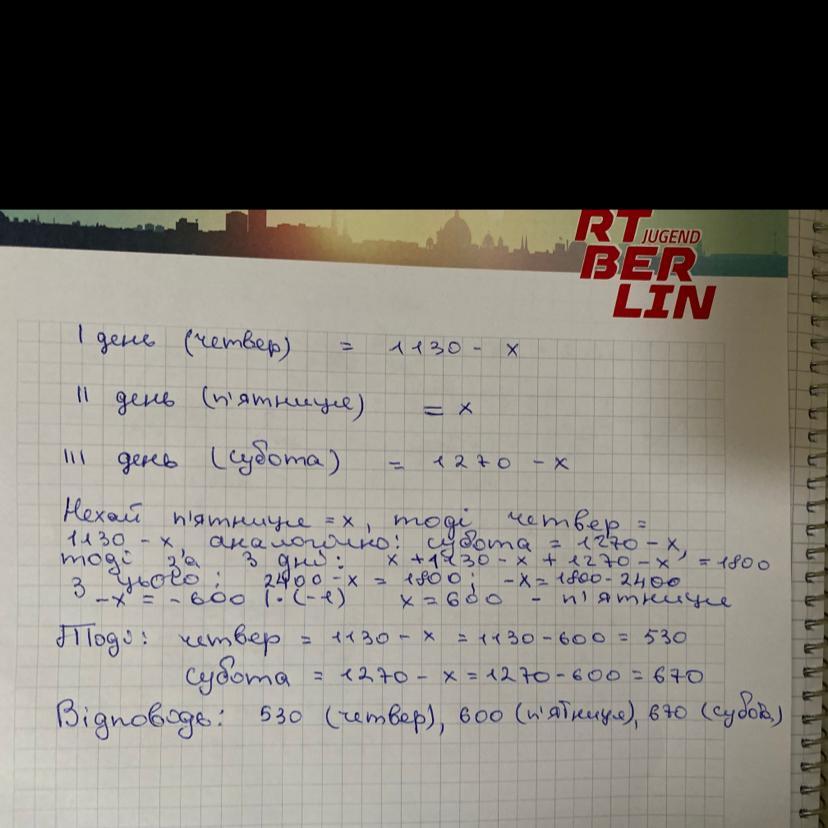 RT JUGEND
BERLIN
I день (четвер) = 1130 - x
II день (п'ятниця) = x
III день (субота) = 1270 - x
Нехай п'ятниця = x, тоді четвер =
1130 - x, аналогічно: субота = 1270 - x,
тоді за 3 дні: x + 1130 - x + 1270 - x = 1800
З цього: 2400 - x = 1800; -x = 1800 - 2400
-x = -600 |·(-1) x = 600 - п'ятниця
Тоді: четвер = 1130 - x = 1130 - 600 = 530
субота = 1270 - x = 1270 - 600 = 670
Відповідь: 530 (четвер), 600 (п'ятниця), 670 (субота)